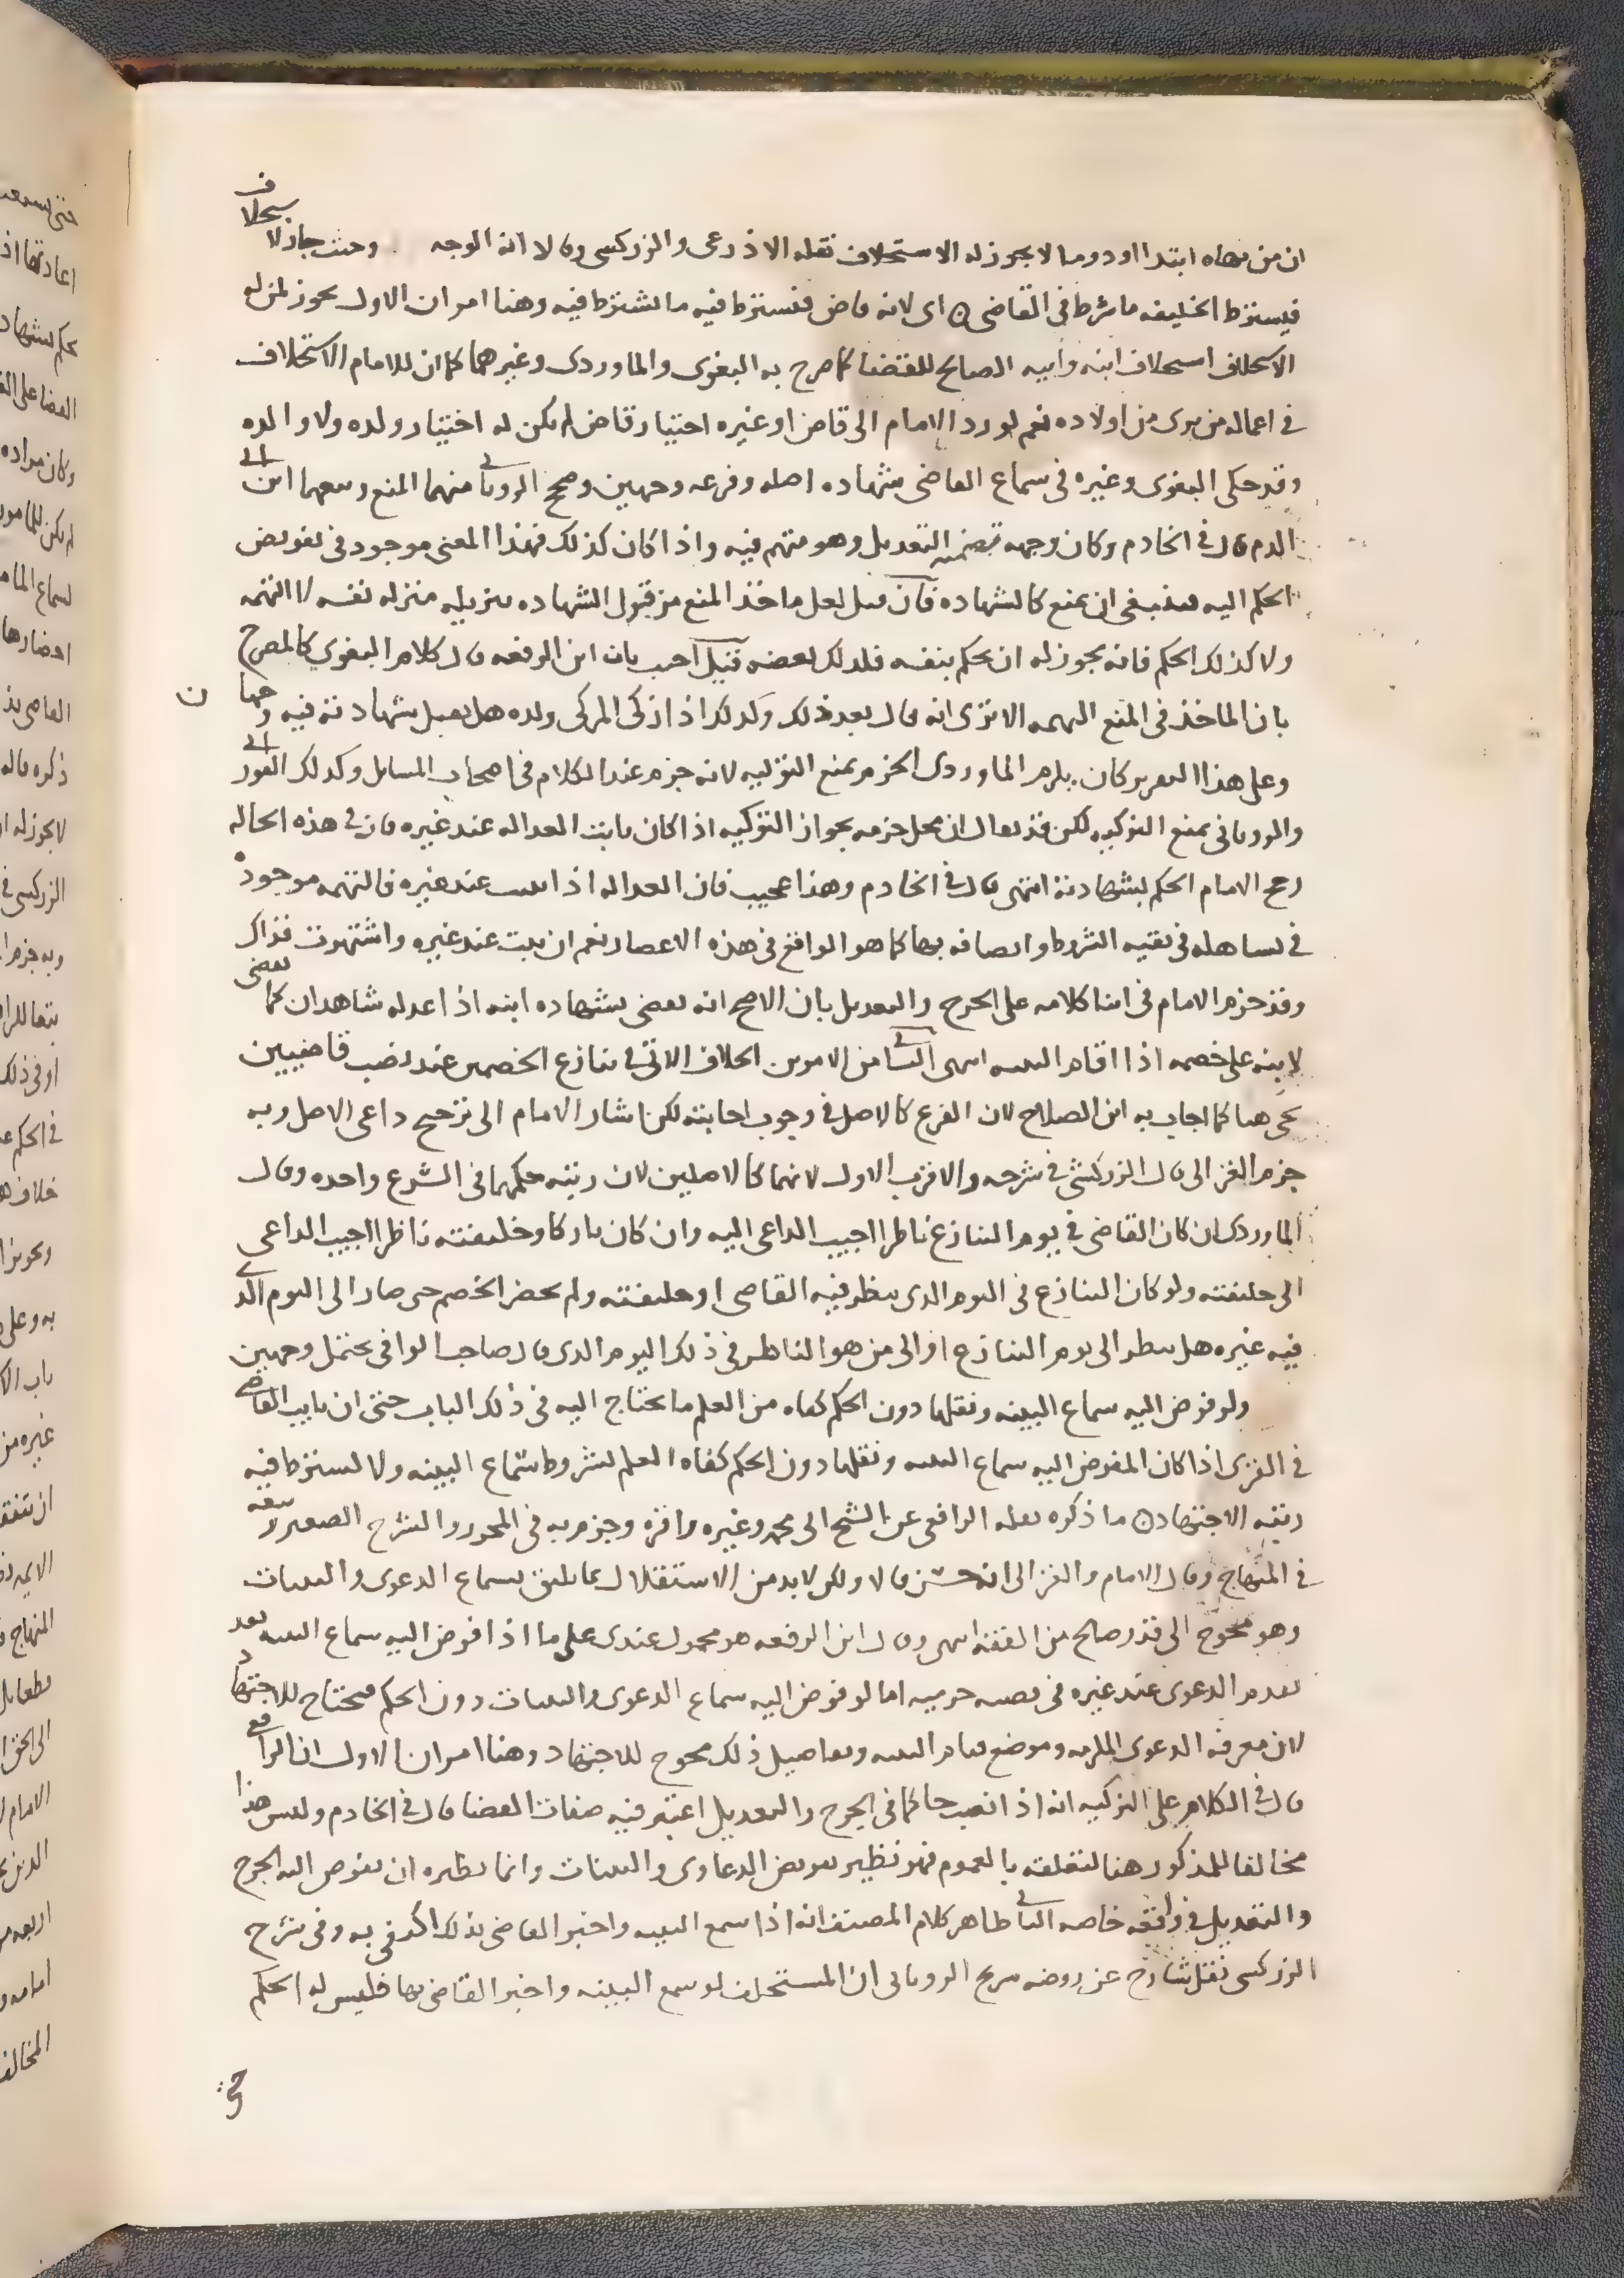 ان من نهاه ابتدا او دوما لا يجوز له الاستخلاف نقله الاذرعى والزركسى وقالا انه الوجه وحيث جاز لا ستخلاف
فيسترط الخليفه ما شرط فى القاضى ای لانه قاض فيسترط فيه ما يشترط فيه وهنا امر ان الاول يجوز لمن له
الاستخلاف استخلاف ابنه وابيه الصالح للقضا كما صرح به البغوى والماوردى وغيرهما كما ان للامام الاستخلاف
في اعماله من يرى من اولاده نعم لو رد الامام الى قاض او غيره اختيار قاض لم يكن له اختيار ولده ولا والده
وقد حكى البغوى وغيره فى سماع القاضى شهاده اصله وفرعه وجهين وصحح الرويانى منهما المنع وتبعهما ابن ابى
الدم قال في الخادم وكان وجهه تضمنه التعديل وهو متهم فيه واذا كان كذلك فهذا المعنى موجود فى تفويض
الحكم اليه فينبغى ان يمنع كالشهاده فان قيل لعل ماخذ المنع من قبول الشهاده تنزيله منزله نفسه لا التهمه
ولا كذلك الحكم فانه يجوز له ان يحكم بنفسه فلذلك لعضه قيل اجيب بان ابن الرفعه قال كلام البغوى كالمصرح
بان الماخذ فى المنع التهمه الا ترى انه قال بعد ذلك وكذلك اذا زكى المزكى ولده هل تقبل شهادته فيه وجهان
وعلى هذا التقرير كان يلزم الماوردى الجزم بمنع التزكيه لانه جزم عند الكلام فى اصحاب المسايل وكذلك الفورانى
والرويانى بمنع التزكيه لكن قد يقال ان محل جزمه بجواز التزكيه اذا كان ثابت العداله عند غيره فان في هذه الحاله
رجح الامام الحكم بشهادته انتهى قال في الخادم وهذا عجيب فان العداله اذا ثبتت عند غيره فالتهمه موجودة
في تساهله فى بقيه الشروط واتصافه بها كما هو الواقع فى هذه الاعصار نعم ان ثبت عند غيره واشتهرت فذاك
وقد جزم الامام فى اثنا كلامه على الجرح والتعديل بان الاصح انه يقضى بشهاده ابنه اذا عدله شاهدان كما يقضى
لابنه على خصمه اذا اقام البينه انتهى الثانى من الامرين الخلاف الاتى في تنازع الخصمين عند نصب قاضيين
يجى هنا كما اجاب به ابن الصلاح لان الفرع كالاصل في وجوب اجابته لكن اشار الامام الى ترجيح داعى الاصل وبه
جزم الغزالى قال الزركشى في شرحه والاقرب الاول لانهما كالاصلين لان رتبه حكمهما فى الشرع واحده وقال
الماوردى ان كان القاضى في يوم التنازع ناظرا اجيب الداعى اليه وان كان تاركا وخليفته ناظرا اجيب الداعى
الى خليفته ولو كان التنازع فى اليوم الذى ينظر فيه القاضى او خليفته ولم يحضر الخصم حتى صار الى اليوم الذى
فيه غيره هل ينظر الى يوم التنازع او الى من هو الناظر فى ذلك اليوم الذى قال صاحب الوافى يحتمل وجهين
ولو فوض اليه سماع البينه ونقلها دون الحكم كفاه من العلم ما يحتاج اليه فى ذلك الباب حتى ان نايب القاضى
في القرى اذا كان المفوض اليه سماع البينه ونقلها دون الحكم كفاه العلم بشروط سماع البينه ولا يسترط فيه
رتبه الاجتهاد ما ذكره نقله الرافعى عن الشيخ ابى محمد وغيره واقره وجزم به فى المحرر والشرح الصغير وتبعه
في المنهاج وقال الامام والغزالى انه حسن قالا ولكن لا بد من الاستقلال بما يليق بسماع الدعوى والبينات
وهو محوج الى قدر صالح من الفقه انتهى وقال ابن الرفعه هو محمول عندى على ما اذا فوض اليه سماع البينه بعد
تقدم الدعوى عند غيره فى قضيه جزييه اما لو فوض اليه سماع الدعوى والبينات دون الحكم فيحتاج للاجتهاد
لان معرفه الدعوى الملزمه وموضع قيام البينه وتفاصيل ذلك محوج للاجتهاد وهنا امران الاول ان الرافعى
قال فى الكلام على التزكيه انه اذا نصب حاكما فى الجرح والتعديل اعتبر فيه صفات القضا قال فى الخادم وليس هذا
مخالفا للمذكور هنا لتعلقه بالعموم فهو نظير تفويض الدعاوى والبينات وانما نظيره ان يفوض اليه الجرح
والتعديل في واقعه خاصه الثانى ظاهر كلام المصنف انه اذا سمع البينه واخبر القاضى بذلك اكتفى به وفى شرح
الزركسى نقل شارح عن روضه شريح الرويانى ان المستخلف لو سمع البينه واخبر القاضى بها فليس له الحكم